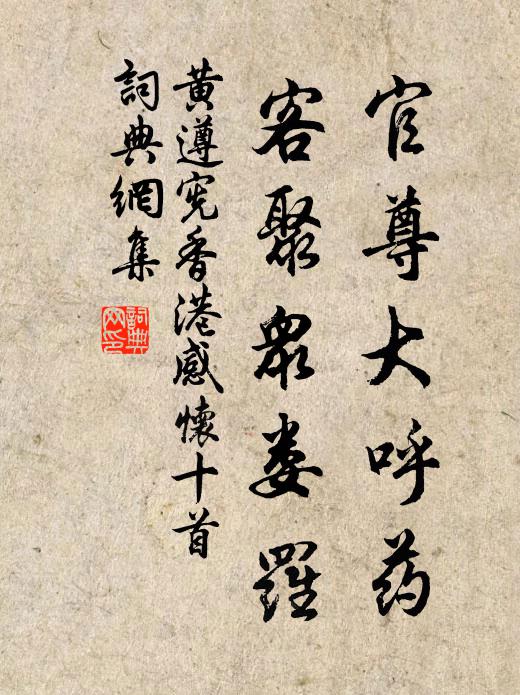 官尊大呼药
客聚眾娄羅
黄遵宪香港感懷十首
詞典網集
詞典
网印